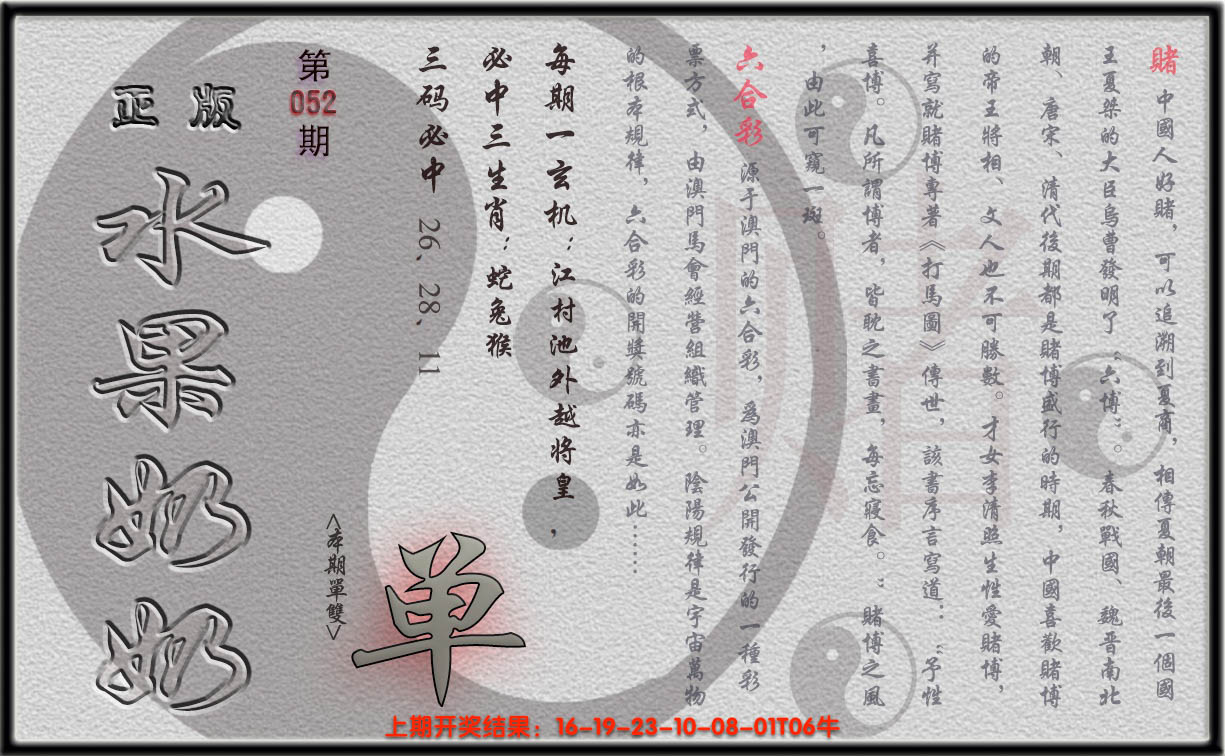 賭 中國人好賭，可以追溯到夏商，相傳夏朝最後一個國
王夏桀的大臣烏曹發明了“六博”。春秋戰國、魏晋南北
朝、唐宋、清代後期都是賭博盛行的時期，中國喜歡賭博
的帝王將相、文人也不可勝數。才女李清照生性愛賭博，
并寫就賭博專著《打馬圖》傳世，該書序言寫道：“予性
喜博。凡所謂博者，皆耽之晝晝，每忘寢食。”賭博之風
，由此可窺一斑。
六合彩 源于澳門的六合彩，爲澳門公開發行的一種彩
票方式，由澳門馬會經營組織管理。陰陽規律是宇宙萬物
的根本規律，六合彩的開獎號碼亦是如此……
每期一玄机：江村池外越将皇，
必中三生肖：蛇兔猴
三码必中 26、28、11
第052期
正版
水果奶奶
<本期單雙>
单
上期开奖结果：16-19-23-10-08-01T06牛